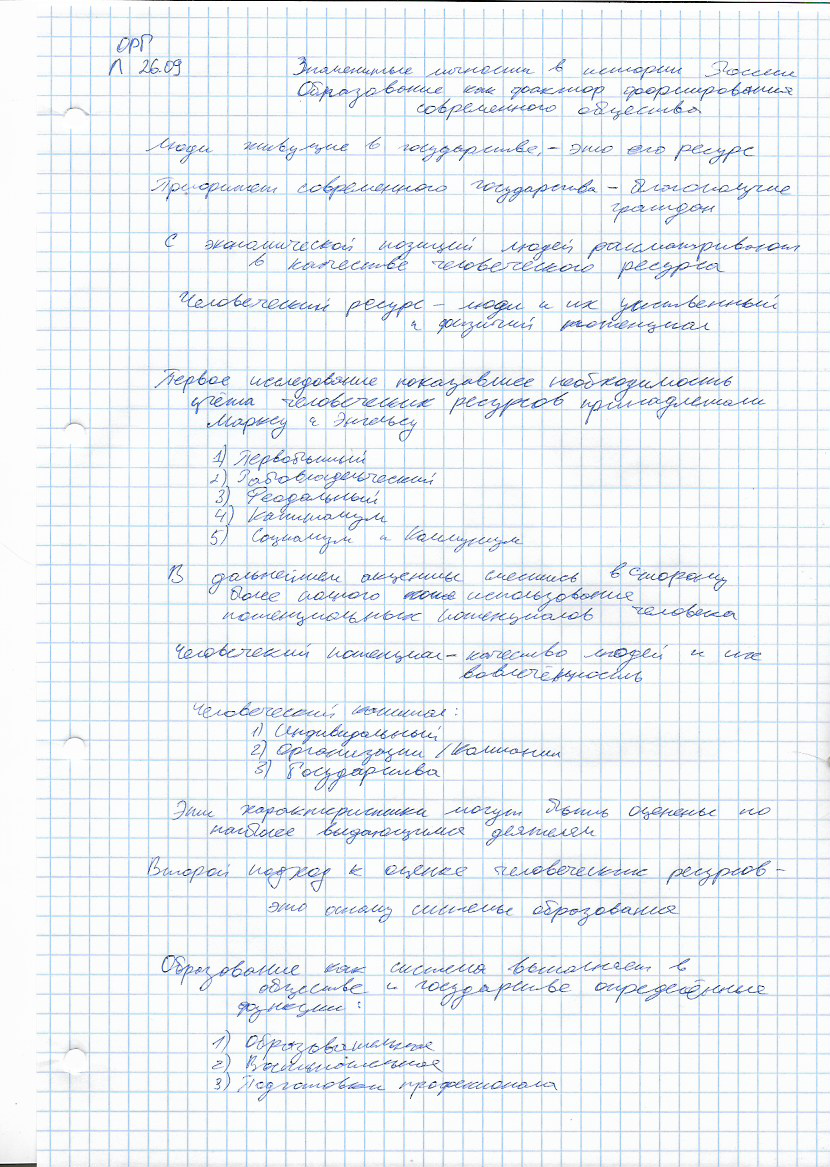 ОРГ
Л 26.09
Знаменитые личности в истории России
Образование как фактор формирования
современного общества
Люди живущие в государстве, - это его ресурс
Приоритет современного государства - благополучие
граждан
С экономической позиции людей рассматривают
в качестве человеческого ресурса
Человеческий ресурс - люди и их умственный
и физичий потенциал
Первое исследование показавшее необходимость
учёта человеческих ресурсов принадлежали
Марксу и Энгельсу
1) Первобытный
2) Рабовладельческий
3) Феодальный
4) Капитализм
5) Социализм и Коммунизм
В дальнейшем акценты сместись в сторону
более полного использования
потенциальных потенциалов человека
Человеческий потенциал - качество людей и их
вовлечённость
Человеческий капитал:
1) Индивидальный
2) Организации / Компании
3) Государства
Эти характеристики могут быть оценены по
наиболее выдающимся деятелем
Второй подход к оценке человеческих ресурсов -
это систему образования
Образование как система выполняет в
обществе и государстве определённые
функции:
1) Образовательное
2) Воспитательное
3) Подготовки професионала